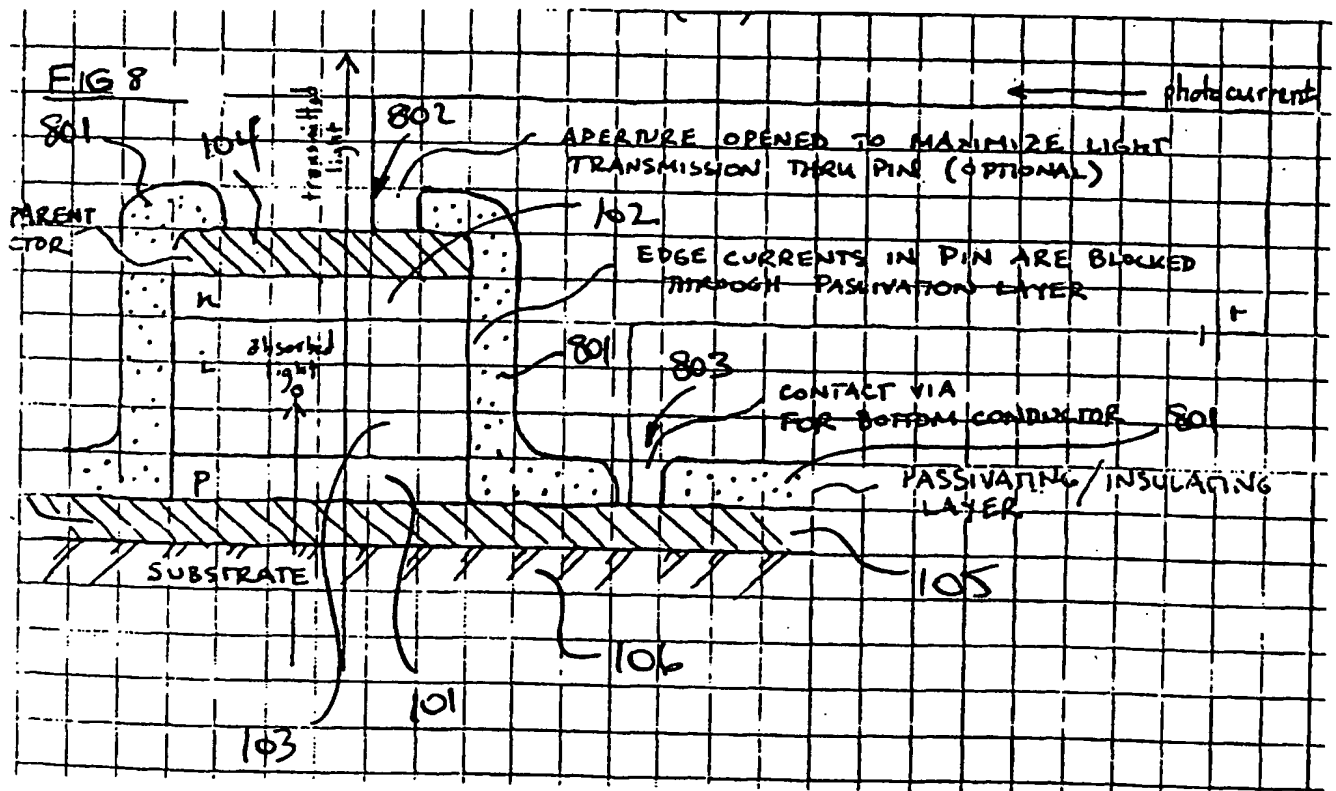 FIG 8
photocurrent
801
104
transmitted
light
802
APERTURE OPENED TO MAXIMIZE LIGHT
TRANSMISSION THRU PIN (OPTIONAL)
102
PARENT
CTOR
EDGE CURRENTS IN PIN ARE BLOCKED
THROUGH PASSIVATION LAYER
n
+
i
absorbed
light
801
803
CONTACT VIA
FOR BOTTOM CONDUCTOR
801
P
PASSIVATING/INSULATING
LAYER
SUBSTRATE
105
106
101
103